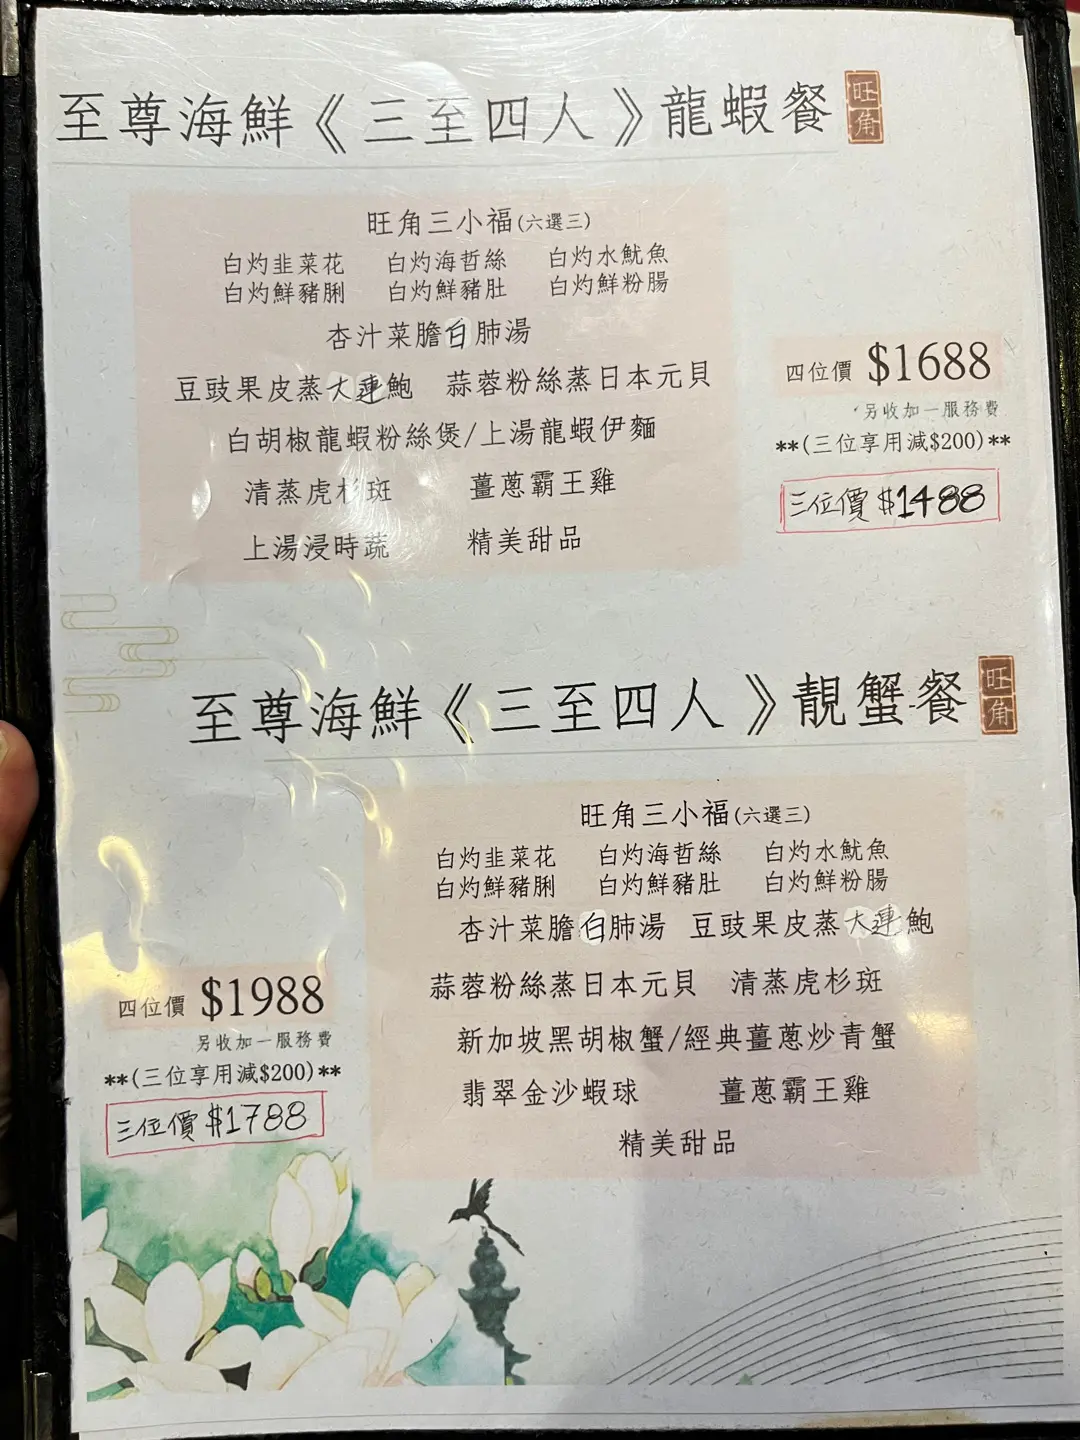 至尊海鮮《三至四人》龍蝦餐
旺角
旺角三小福(六選三)
白灼韭菜花 白灼海哲絲 白灼水魷魚
白灼鮮豬脷 白灼鮮豬肚 白灼鮮粉腸
杏汁菜膽白肺湯
豆豉果皮蒸大連鮑 蒜蓉粉絲蒸日本元貝
白胡椒龍蝦粉絲煲/上湯龍蝦伊麵
清蒸虎杉斑 薑蔥霸王雞
上湯浸時蔬 精美甜品
四位價 $1688
另收加一服務費
**(三位享用減$200)**
三位價 $1488
至尊海鮮《三至四人》靚蟹餐
旺角
旺角三小福(六選三)
白灼韭菜花 白灼海哲絲 白灼水魷魚
白灼鮮豬脷 白灼鮮豬肚 白灼鮮粉腸
杏汁菜膽白肺湯 豆豉果皮蒸大連鮑
蒜蓉粉絲蒸日本元貝 清蒸虎杉斑
新加坡黑胡椒蟹/經典薑蔥炒青蟹
翡翠金沙蝦球 薑蔥霸王雞
精美甜品
四位價 $1988
另收加一服務費
**(三位享用減$200)**
三位價 $1788